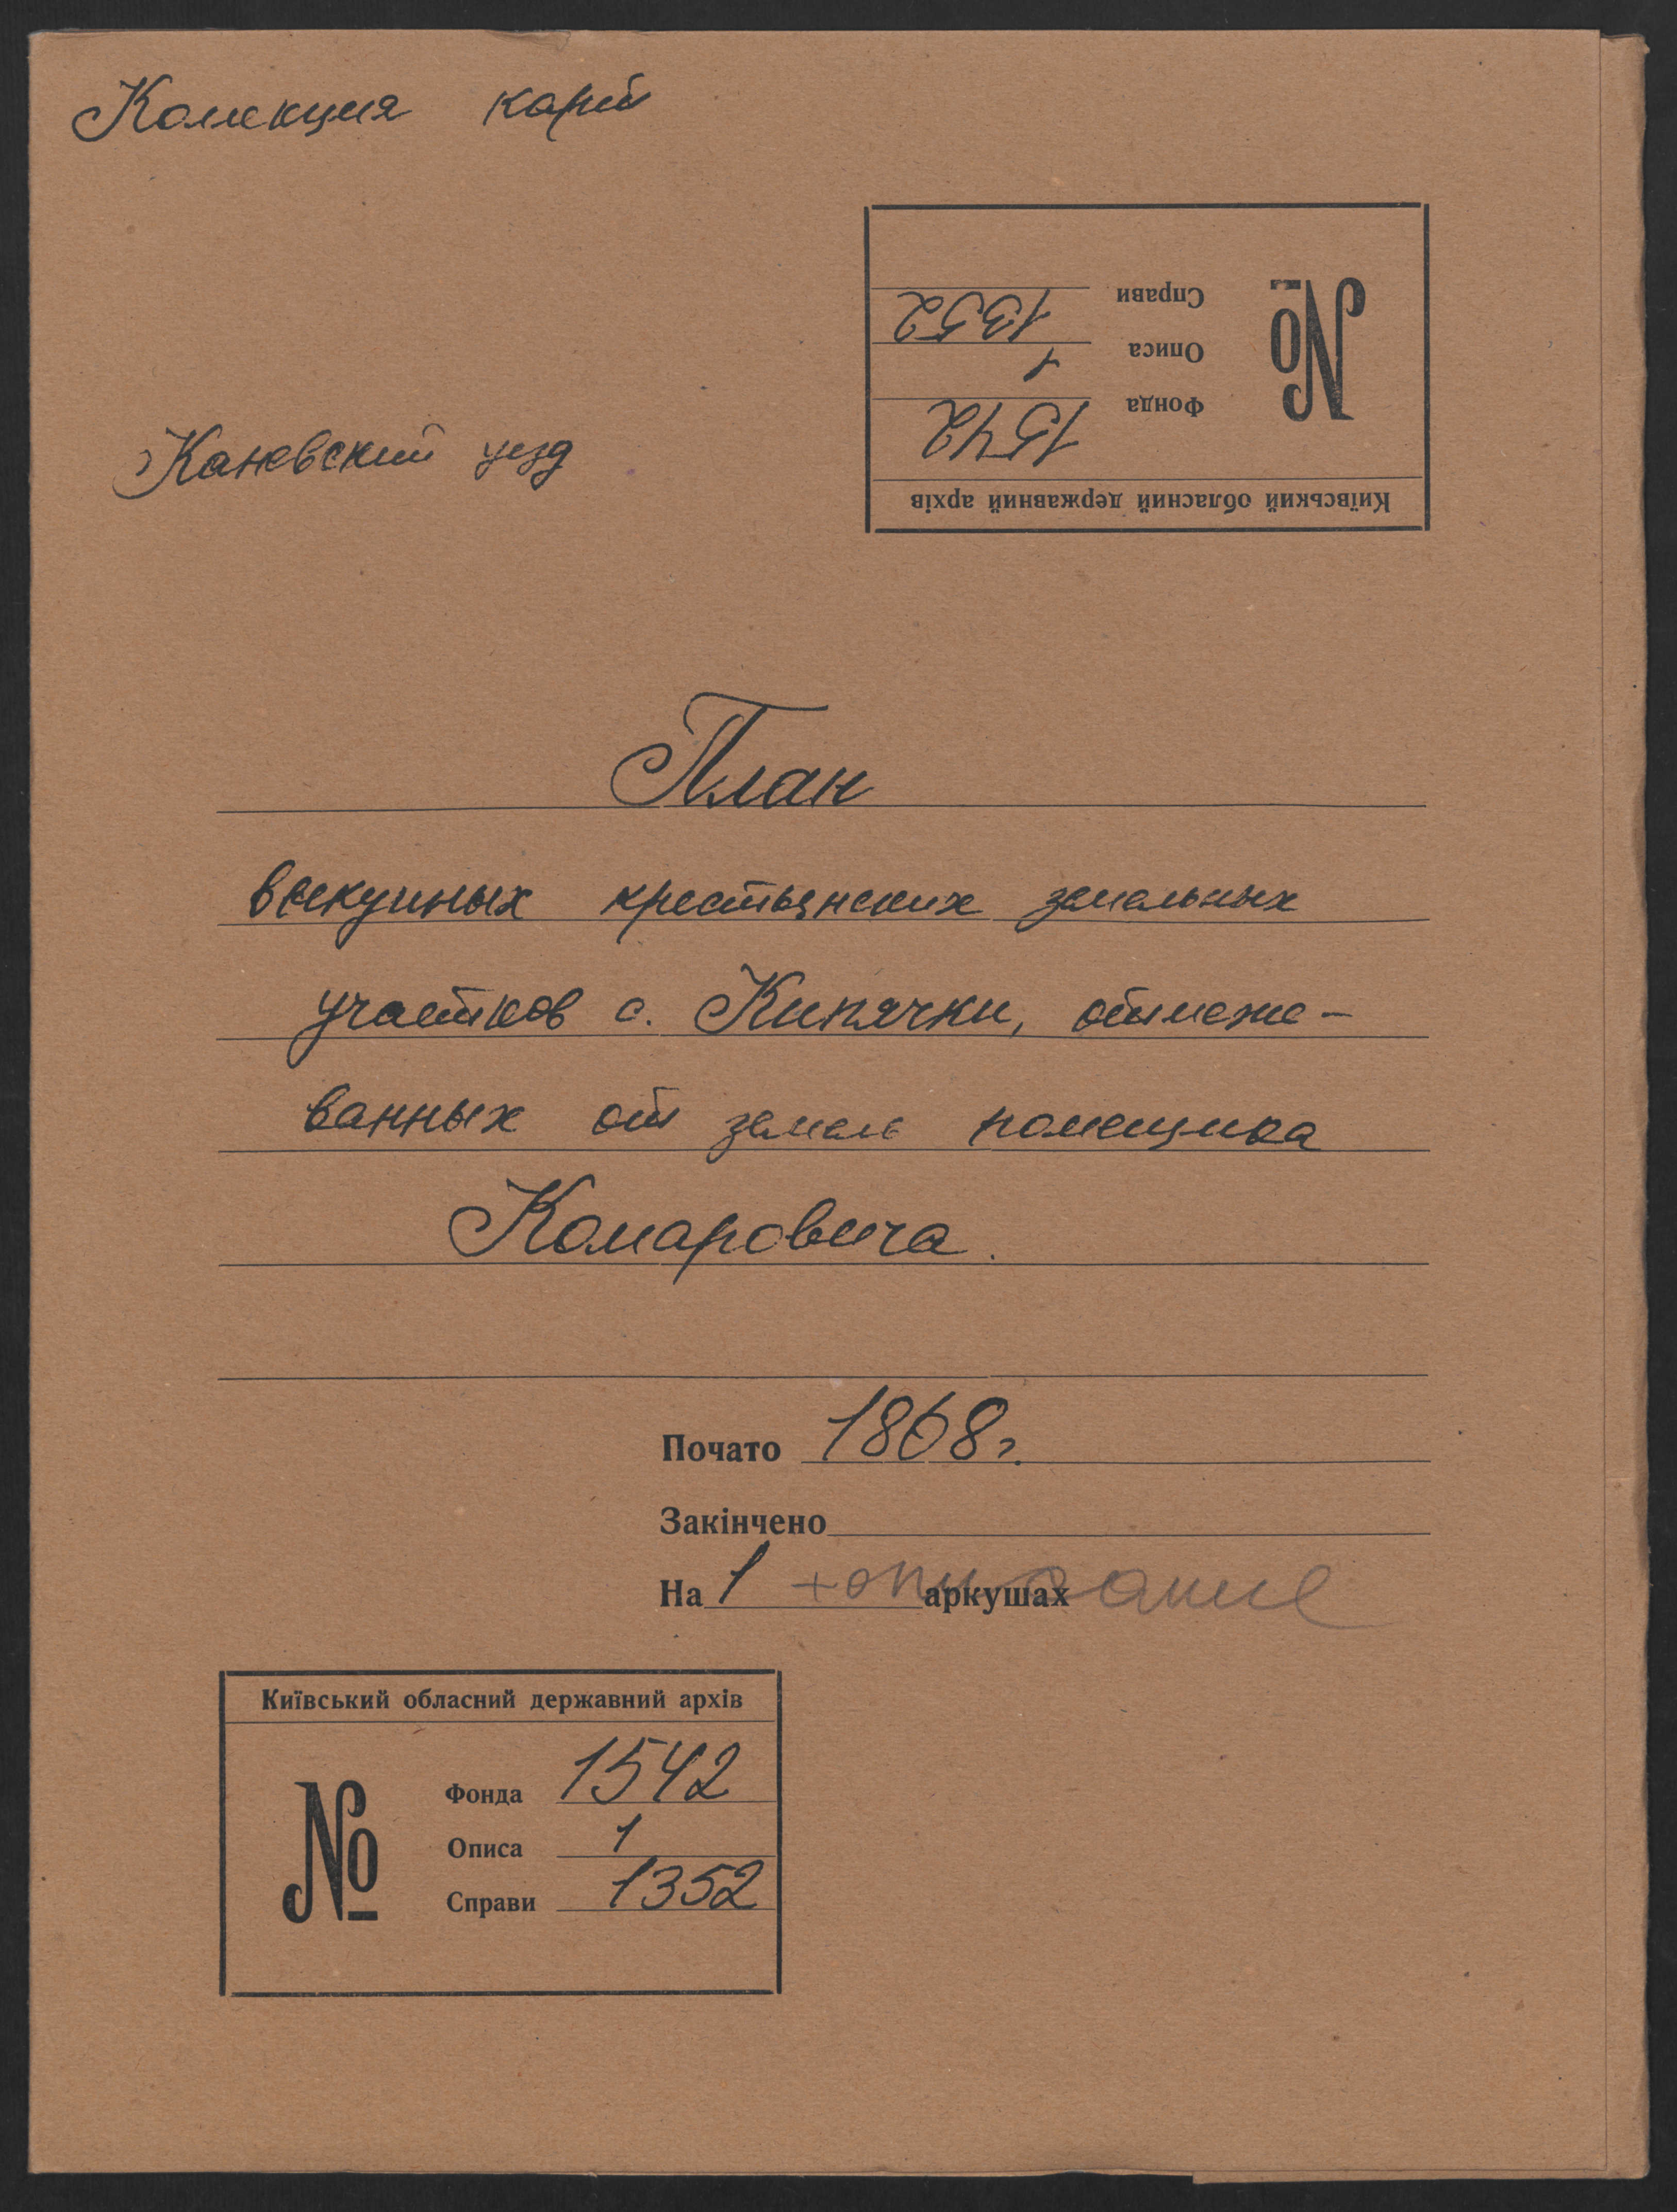 Колекция карт
Київський обласний державний архів
№
Фонда 1542
Описа 1
Справи 1352
Каневский уезд
План
выкупных крестьянских земельных
участков с. Кипячки, отмеже-
ванных от земель помещика
Комаровича.
Почато 1868 г.
Закінчено
На 1 + описание аркушах
Київський обласний державний архів
№
Фонда 1542
Описа 1
Справи 1352